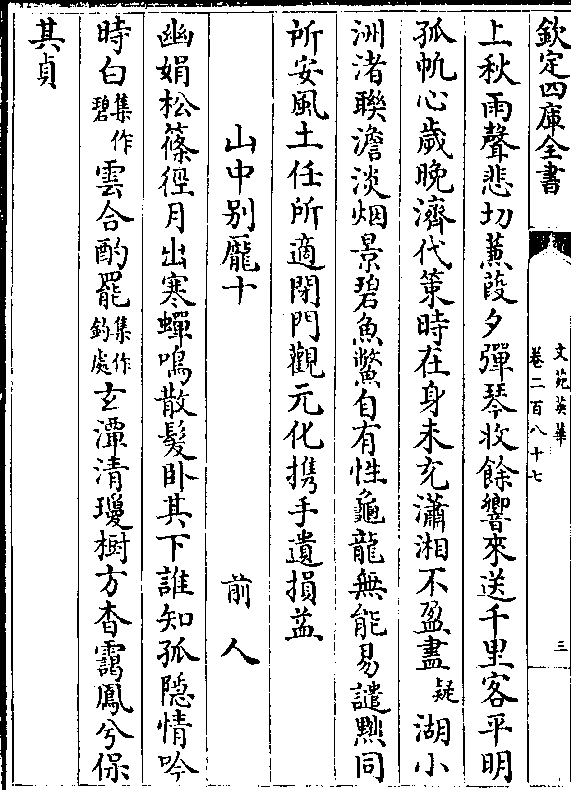 欽定四庫全書
文苑英華
卷二百八十七
三
上秋雨聲悲切蒹葭夕彈琴收餘響來送千里客平明
孤帆心歲晚濟代策時在身未充瀟湘不盈畫疑湖小
洲渚聯澹淡烟景碧魚鱉自有性龜龍無能易譴黜同
所安風土任所適閉門觀元化携手遺損益
山中别龐十 前人
幽娟松篠徑月出寒蟬鳴散髮卧其下誰知孤隱情吟
時白集作碧雲合酌罷集作釣處玄潭清瓊樹方杳靄鳳兮保
其貞